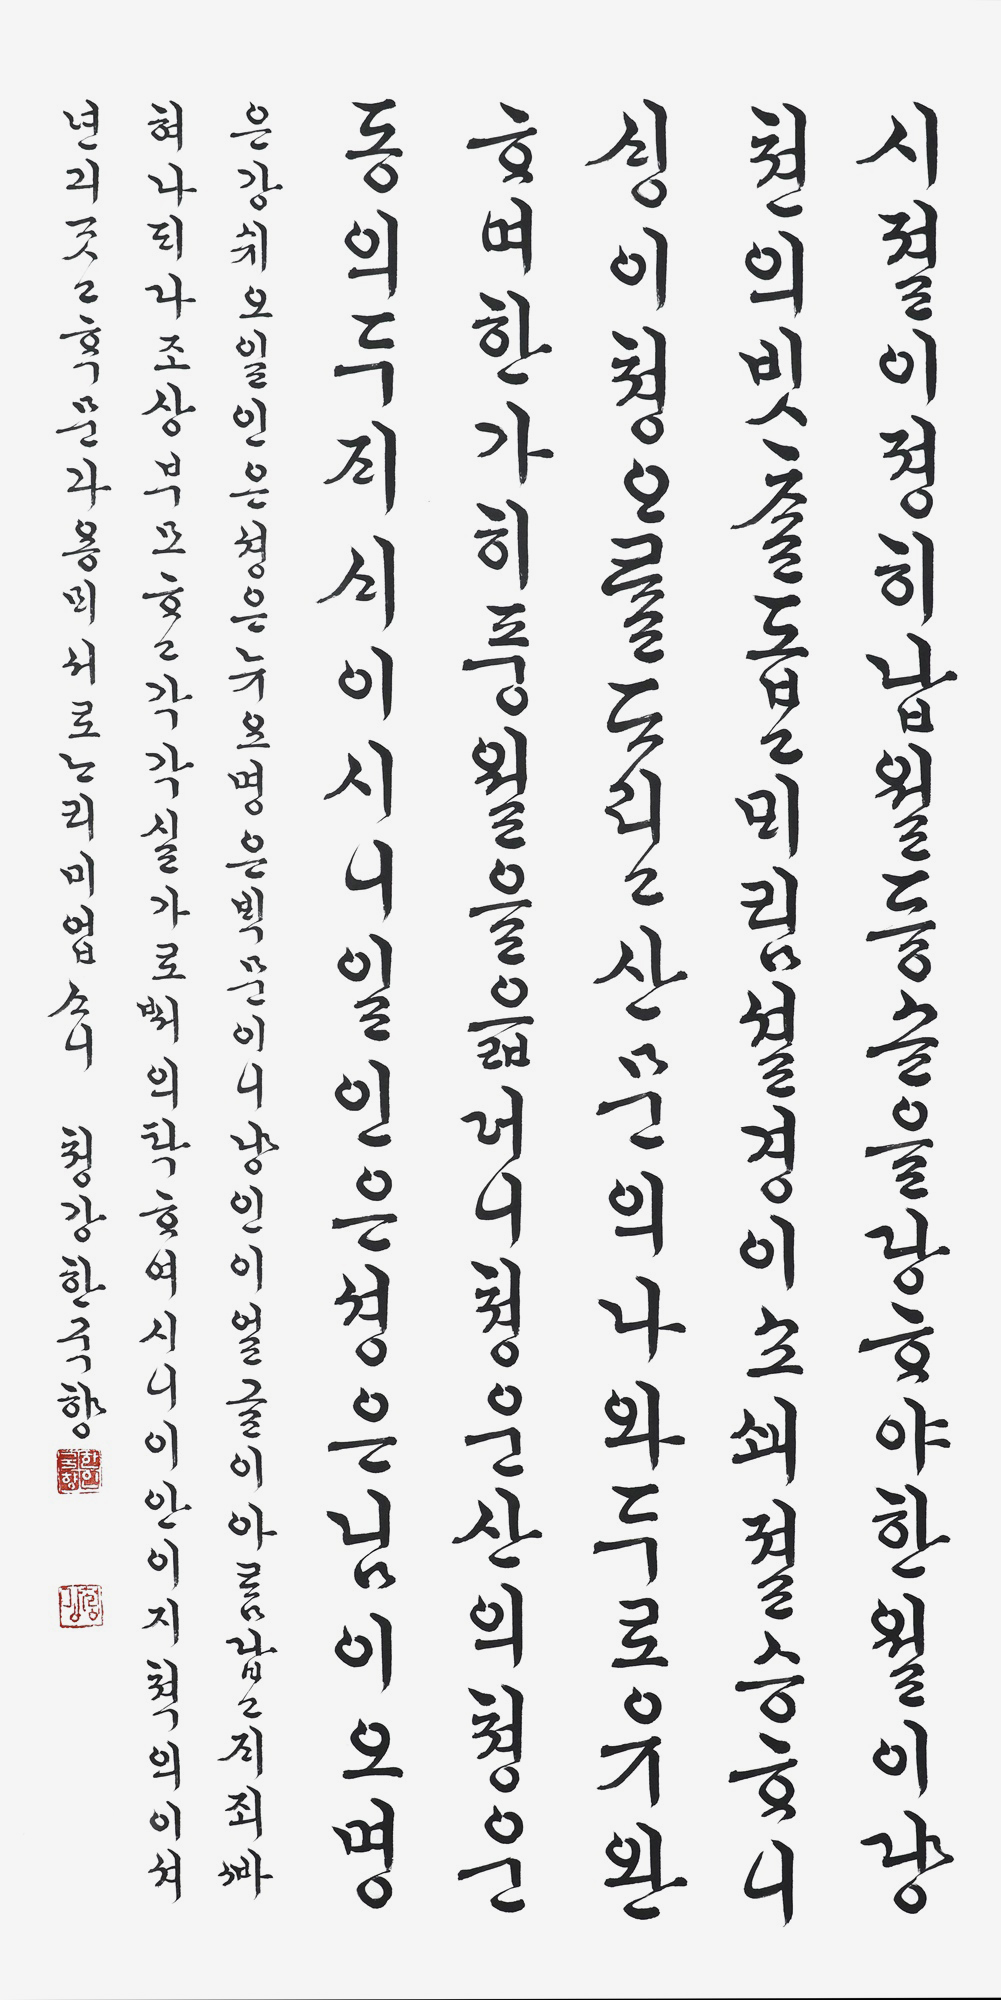 시졀이졍히납월듕슌을당ᄒᆞ야한월이냥
쳔의빗츨돕고ᄆᆡ림셜경이소쇄졀승ᄒᆞ니
싱이쳥오ᄅᆞᆯᄃᆞ리고산문의나와두로유완
ᄒᆞ며한가히풍월을읇더니쳥운산의쳥운
동의두ᄌᆡᄉᆡ이시니일인은셩은님이오명
은강쉬오일인은셩은뉴오명은ᄇᆡᆨ문이니냥인이얼굴이아름답고ᄌᆡ죄ᄲᅡ
혀나디라조상부모ᄒᆞ고각각실가로ᄡᅥ의탁ᄒᆞ여시니이안이지쳑의이셔
년긔ᄌᆞᆺ고ᄒᆞᆨ문과용ᄆᆡ서로ᄂᆞ리미업ᄉᆞ니 쳥강한국향